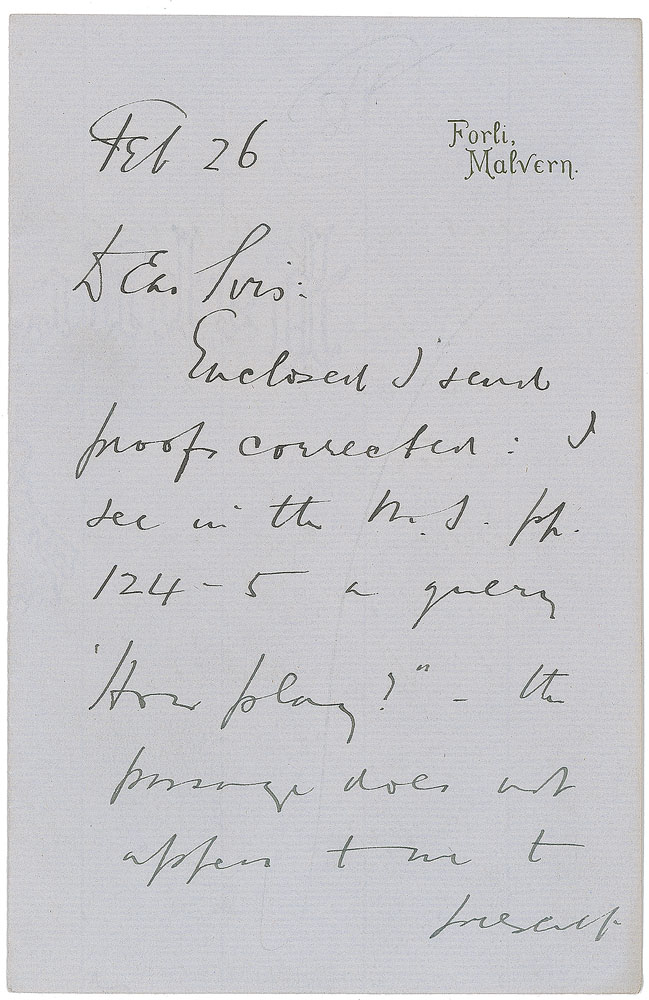 Feb 26
Forli,
Malvern.
Dear Sirs:
Enclosed I send
proofs corrected: I
see in the M.S. pp.
124-5 a query
"How play?" - the
passage does not
appear to me to
present